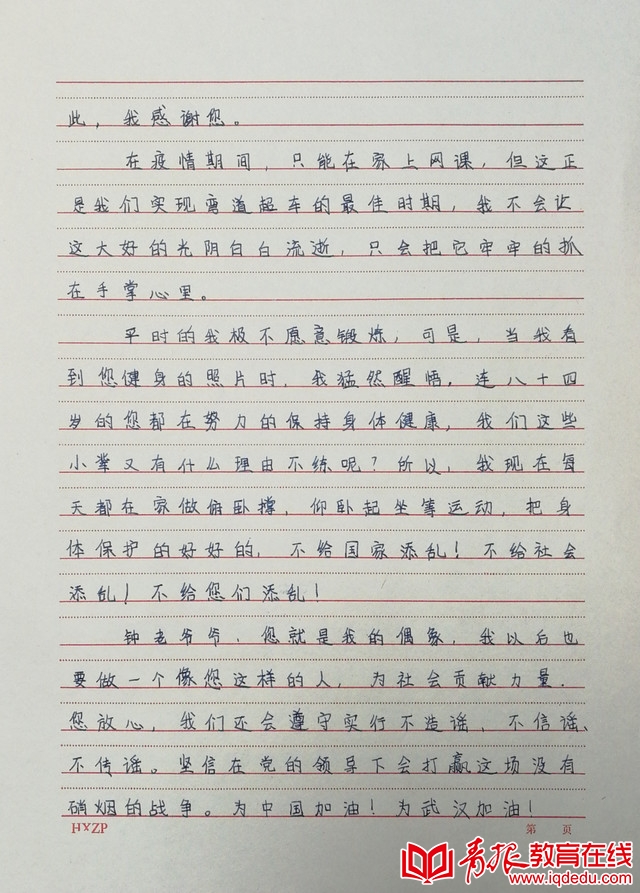 此，我感谢您。
在疫情期间，只能在家上网课，但这正
是我们实现弯道超车的最佳时期，我不会让
这大好的光阴白白流逝，只会把它牢牢的抓
在手掌心里。
平时的我极不愿意锻炼，可是，当我看
到您健身的照片时，我猛然醒悟，连八十四
岁的您都在努力的保持身体健康，我们这些
小辈又有什么理由不练呢？所以，我现在每
天都在家做俯卧撑，仰卧起坐等运动，把身
体保护的好好的，不给国家添乱！不给社会
添乱！不给您们添乱！
钟老爷爷，您就是我的偶像，我以后也
要做一个像您这样的人，为社会贡献力量.
您放心，我们还会遵守实行不造谣、不信谣、
不传谣。坚信在党的领导下会打赢这场没有
硝烟的战争。为中国加油！为武汉加油！
HXZP 第 页
青报教育在线
www.iqdedu.com